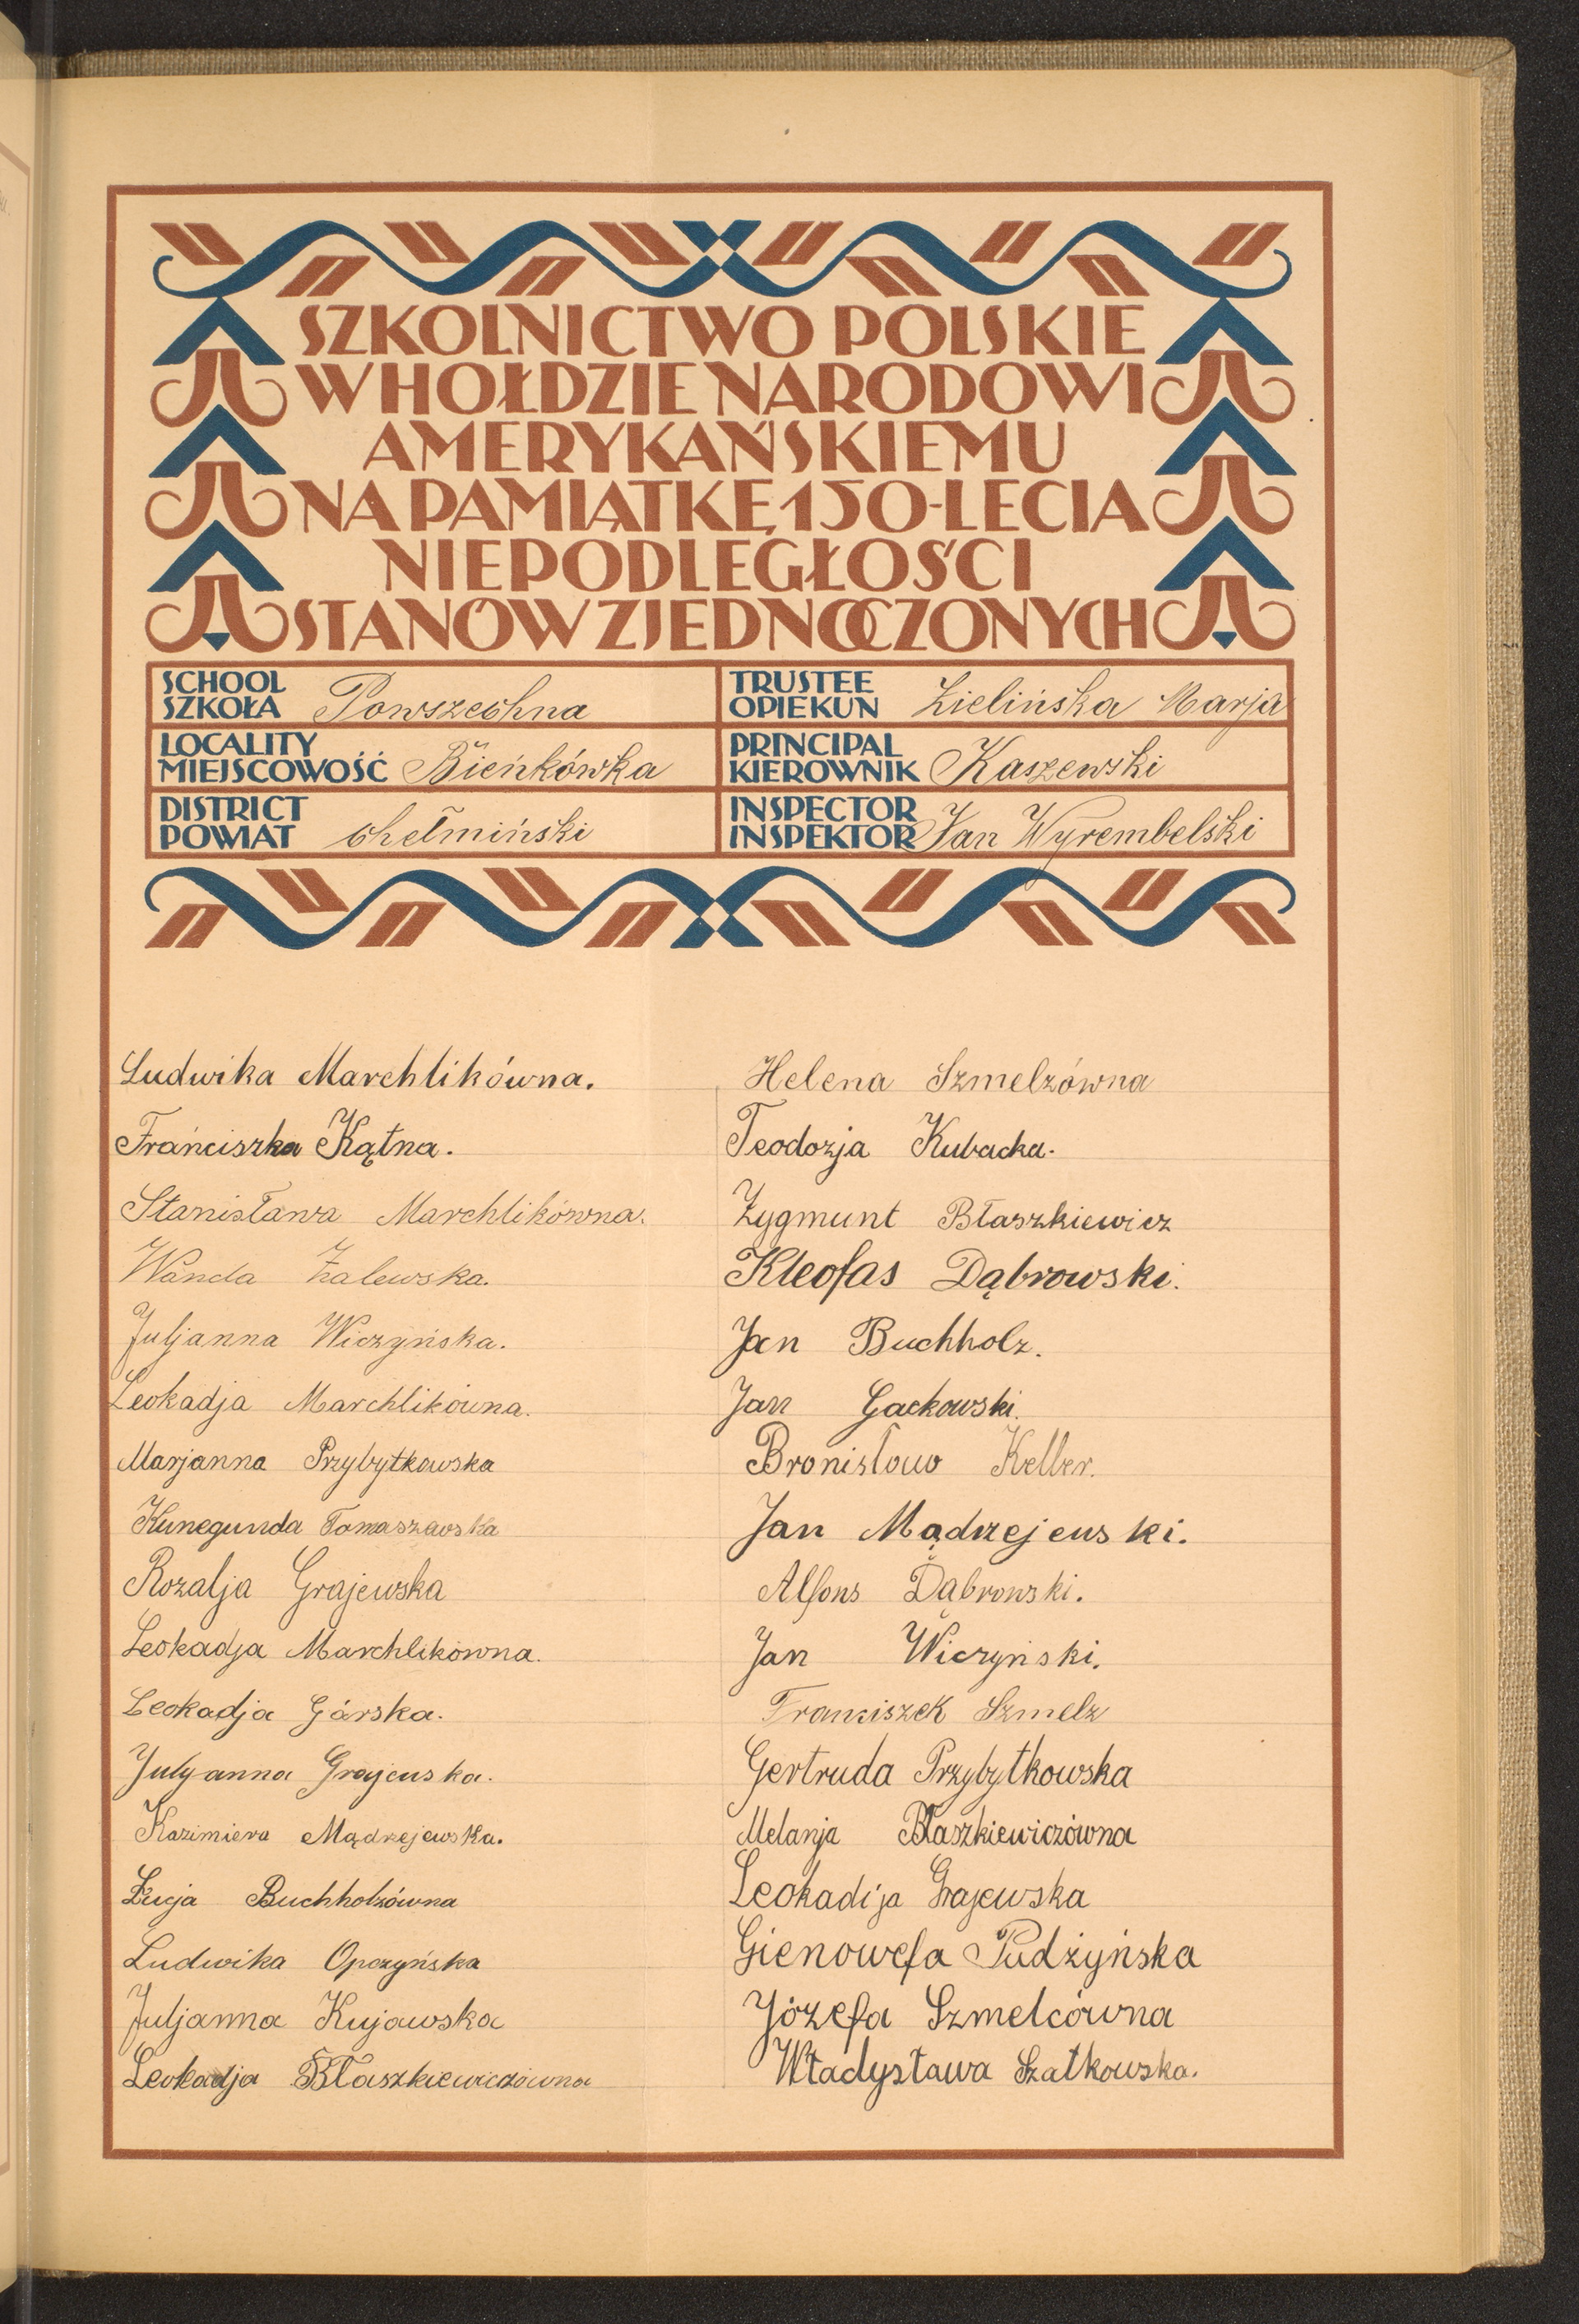 SZKOLNICTWO POLSKIE
W HOŁDZIE NARODOWI
AMERYKAŃSKIEMU
NA PAMIĄTKĘ 150-LECIA
NIEPODLEGŁOŚCI
STANÓW ZJEDNOCZONYCH
SCHOOL
SZKOŁA Powszechna
TRUSTEE
OPIEKUN Zielińska Marja
LOCALITY
MIEJSCOWOŚĆ Bieńkówka
PRINCIPAL
KIEROWNIK Kaszewski
DISTRICT
POWIAT chełmiński
INSPECTOR
INSPEKTOR Jan Wyrembelski
Ludwika Marchlikówna.
Frańciszka Kątna.
Stanisława Marchlikówna.
Wanda Zalewska.
Juljanna Wiczyńska.
Leokadja Marchlikówna.
Marjanna Przybytkowska
Kunegunda Tomaszewska
Rozalja Grajewska
Leokadja Marchlikówna.
Leokadja Górska.
Julyanna Grajewska.
Kazimiera Mądrzejewska.
Łucja Buchholzówna
Ludwika Opczyńska
Juljanna Kujawska
Leokadja Błaszkiewiczówna
Helena Szmelzówna
Teodozja Kubacka.
Zygmunt Błaszkiewicz
Kleofas Dąbrowski.
Jan Buchholz.
Jan Gackowski.
Bronisław Keller.
Jan Mądrzejewski.
Alfons Dąbrowski.
Jan Wiczyński.
Franciszek Szmelz
Gertruda Przybytkowska
Melanja Błaszkiewiczówna
Leokadija Grajewska
Gienowefa Pudżyńska
Józefa Szmelcówna
Władysława Szatkowska.